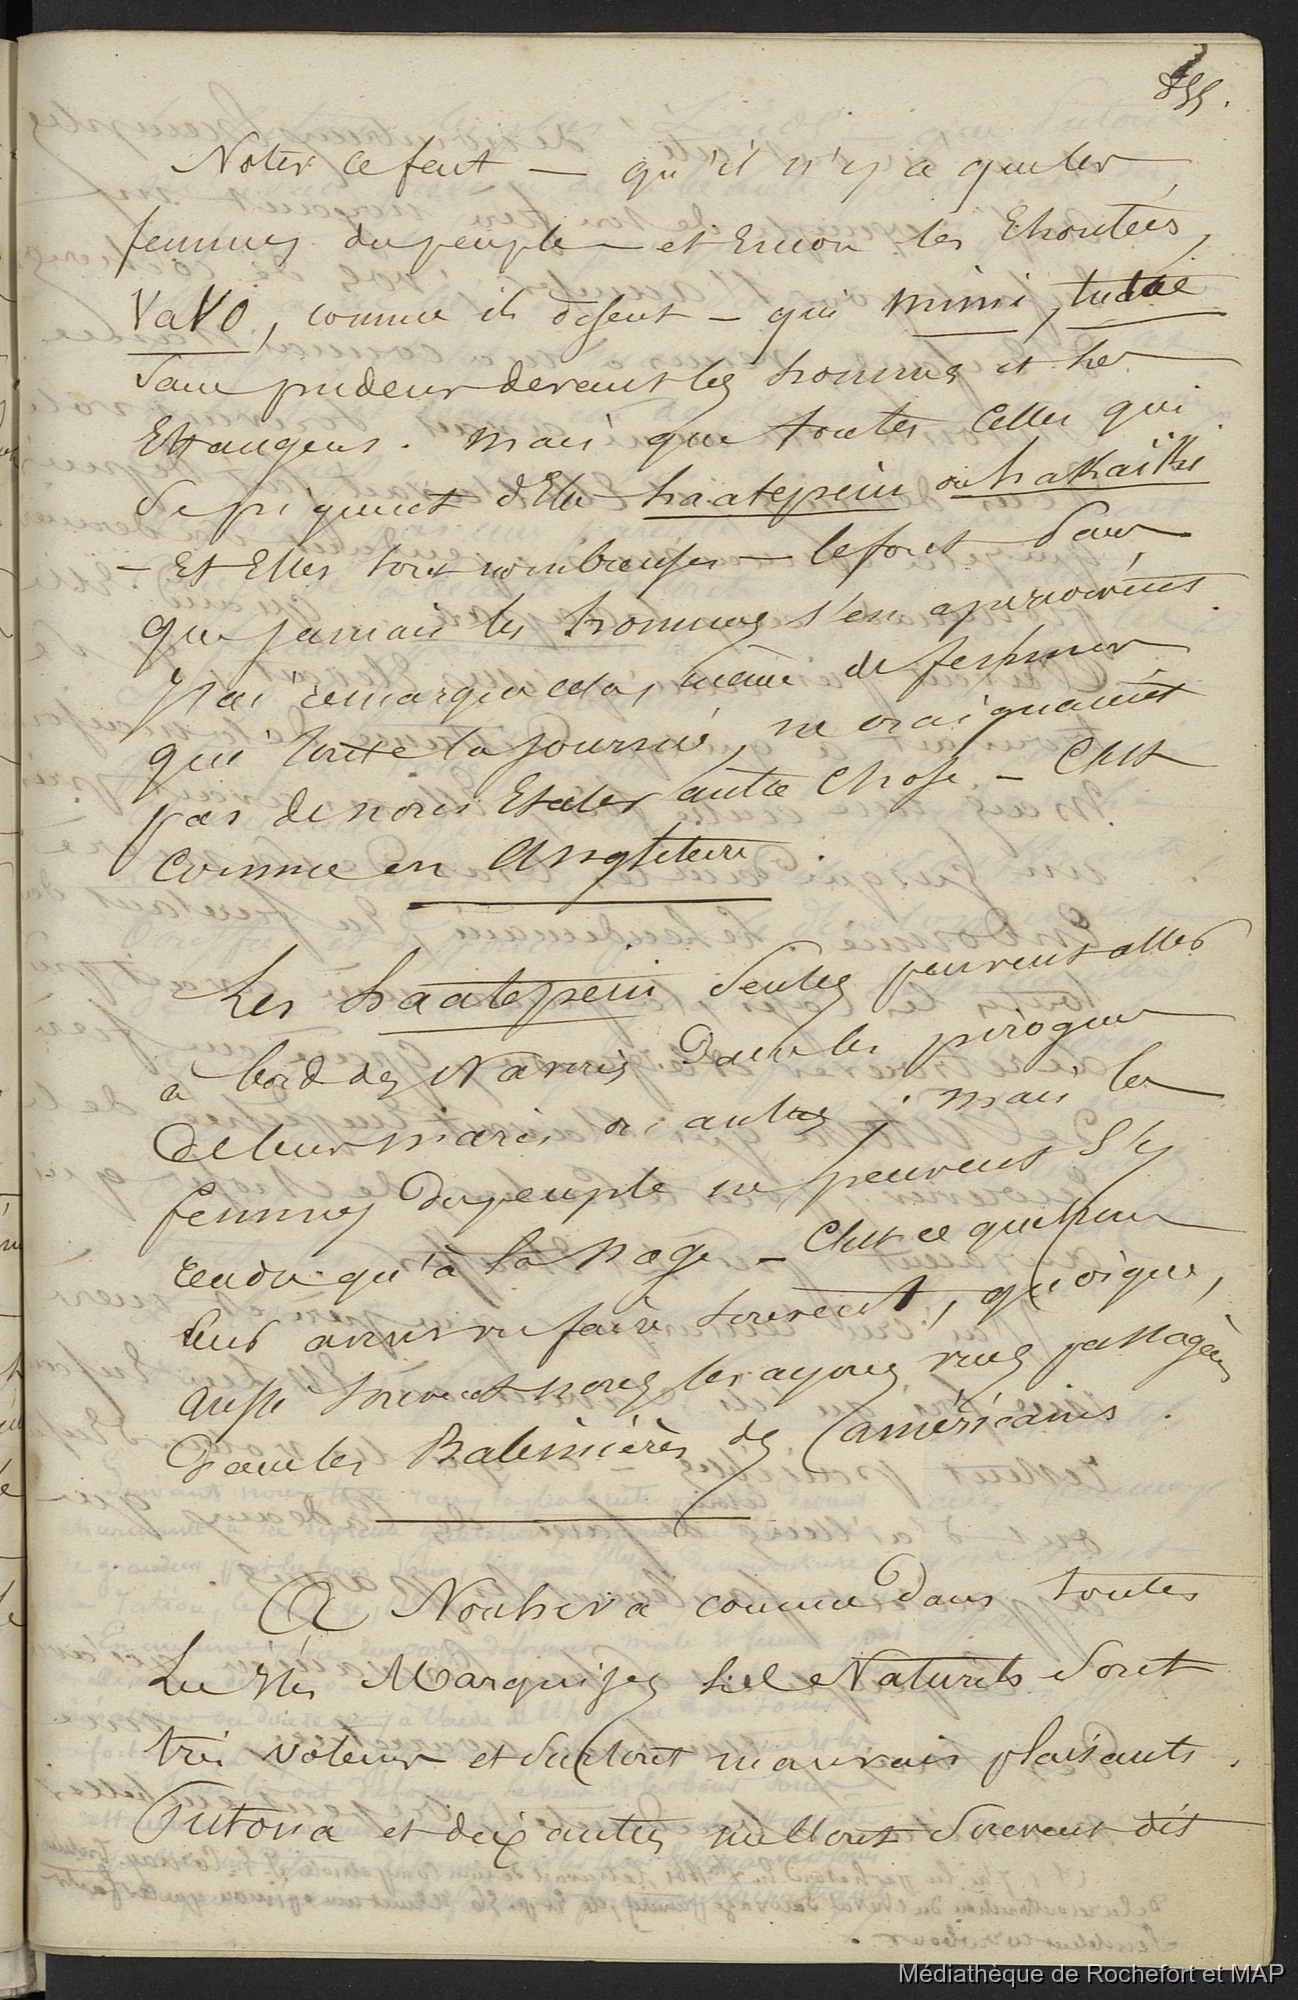 855.
Noter ce fait — qu'il n'y a que les
femmes du peuple — et encor les Ehontées,
VaVO, comme ils disent — qui mimi, tudae
sans pudeur devant les hommes et les
Etrangers. mais que toutes Celles qui
se piquent d'Etre haatepeiu ou hakaiki
— Et Elles sont nombreuses — le font sans
que jamais les hommes s'en apercoivent.
J'ai remarqué cela, même de femmes
qui toute la journée, ne craignaient
pas de nous Etaler autre Chose — C'est
comme en Angleterre.
Les haatepeiu seules peuvent aller
à bord des Navires dans les pirogues
de leur maris ou autres; mais les
femmes du peuple ne peuvent s'y
rendre qu'à la nage — C'est ce que nous
leur avons vu faire souvent, quoique,
aussi souvent nous les ayons vues passagères
dans les Baleinières des américains.
A Nouhiva comme dans toutes
Les Iles Marquises les Naturels sont
très voleurs et surtout mauvais plaisants.
Putona et dix autres m'ont souvent dit
Médiathèque de Rochefort et MAP